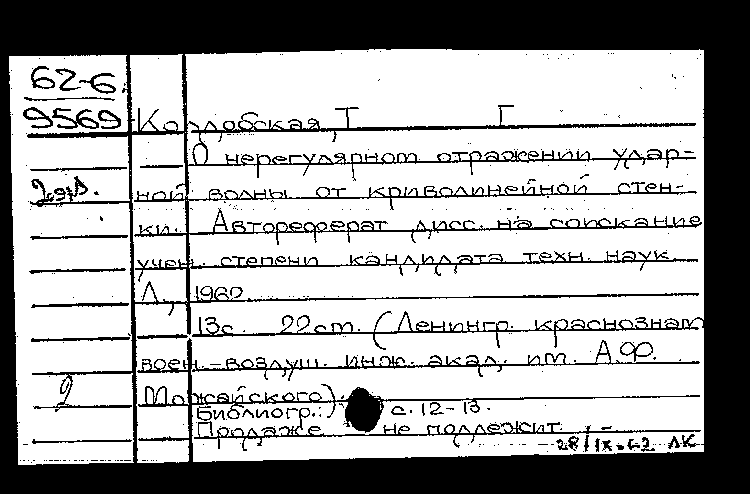 62-6
9569
Козлобская, Т Г
О нерегулярном отражении удар-
2экз.
ной волны от криволинейной стен-
ки. Автореферат дисс. на соискание
учен. степени кандидата техн. наук
Л., 1960.
13с. 22см. (Ленингр. краснознам
воен.-воздуш. инж. акад. им. А.Ф.
2
Можайского).
Библиогр.: с. 12-13.
Продаже не подлежит
28/IX-62 ЛК